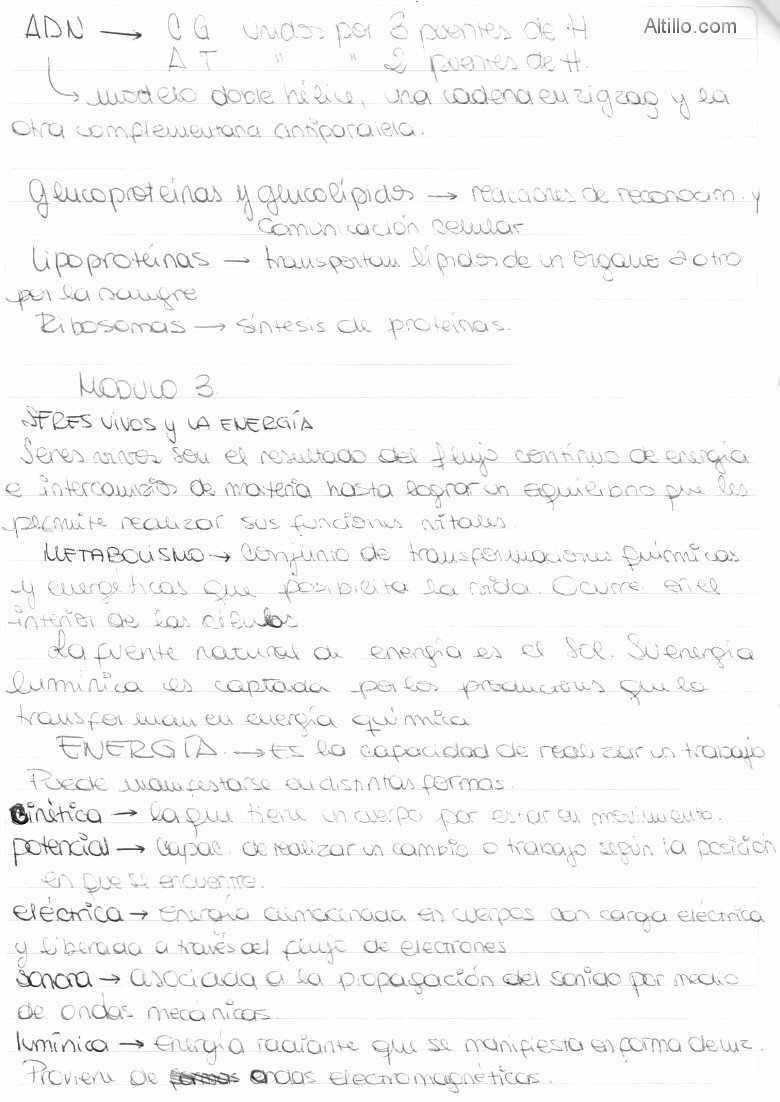 Altillo.com
ADN → C G unidas por 3 puentes de H
A T " " 2 puentes de H.
↳ modelo doble hélice, una cadena en zigzag y la
otra complementaria antiparalela.
Glucoproteínas y glucolípidos → reacciones de reconocim. y
comunicación celular
Lipoproteínas → transportan lípidos de un órgano a otro
por la sangre
Ribosomas → síntesis de proteínas.
MODULO 3
SERES VIVOS y LA ENERGÍA
Seres vivos son el resultado del flujo contínuo de energía
e intercambio de materia hasta lograr un equilibrio que les
permite realizar sus funciones vitales.
METABOLISMO → Conjunto de transformaciones químicas
y energéticas que posibilita la vida. Ocurre en el
interior de las células
La fuente natural de energía es el Sol. Su energía
lumínica es captada por los productores que la
transforman en energía química
ENERGÍA → Es la capacidad de realizar un trabajo
Puede manifestarse en distintas formas.
Cinética → la que tiene un cuerpo por estar en movimiento.
potencial → Capac. de realizar un cambio o trabajo según la posición
en que se encuentre.
eléctrica → Energía almacenada en cuerpos con carga eléctrica
y liberada a través del flujo de electrones
sonora → asociada a la propagación del sonido por medio
de ondas mecánicas.
lumínica → Energía radiante que se manifiesta en forma de luz.
Proviene de ondas electromagnéticas.